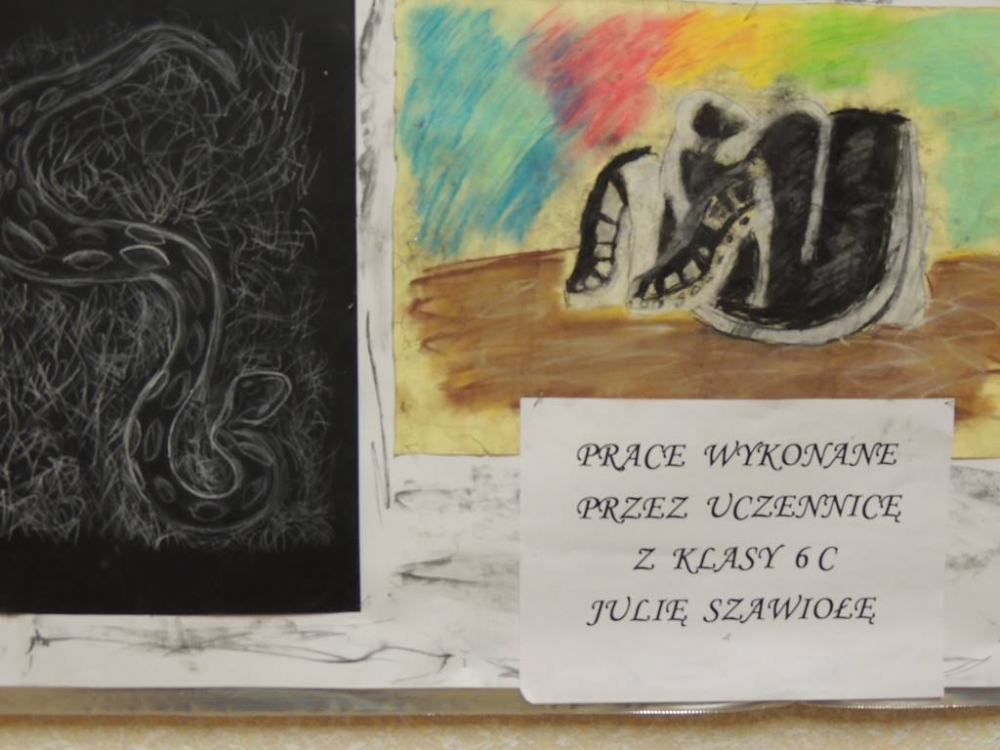 PRACE WYKONANE
PRZEZ UCZENNICĘ
Z KLASY 6 C
JULIĘ SZAWIOŁĘ